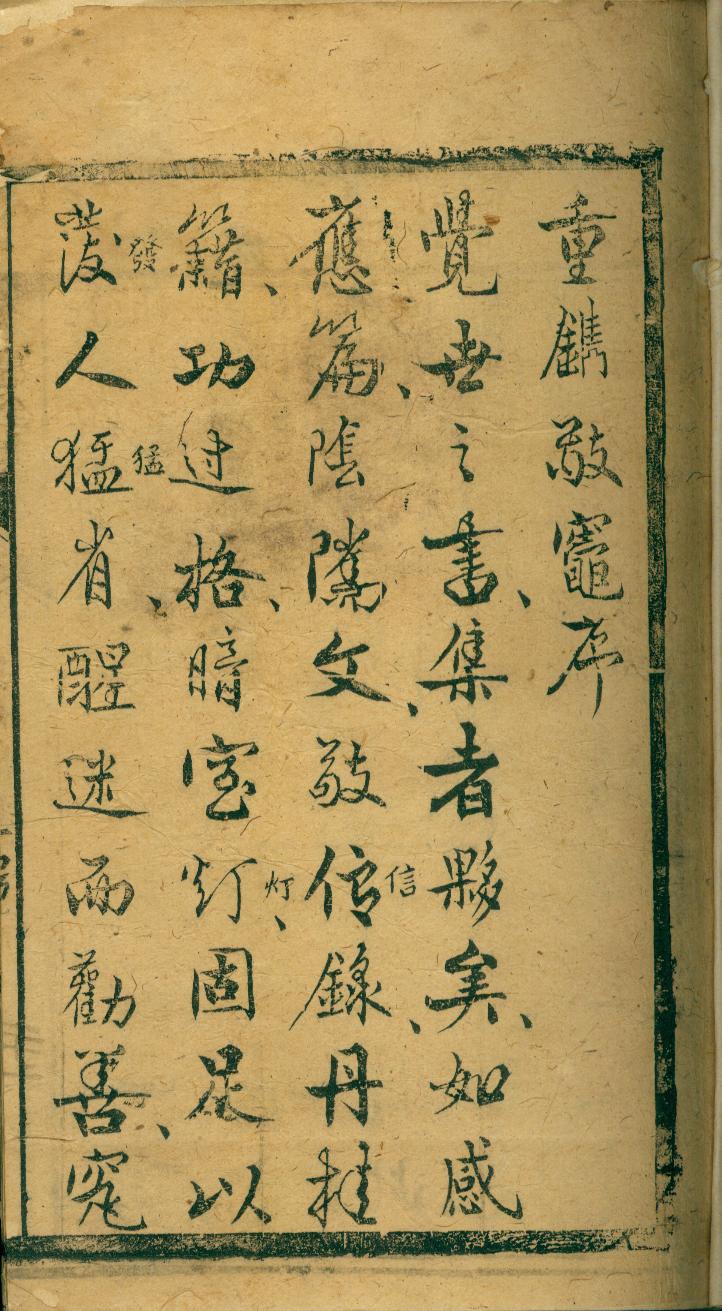 重鐫敬竈序
覺世之書、集者夥矣、如感
應篇、陰隲文、敬信信錄、丹桂
籍、功过格、暗室灯灯、固足以
發發人猛猛省、醒迷而勸善、窕